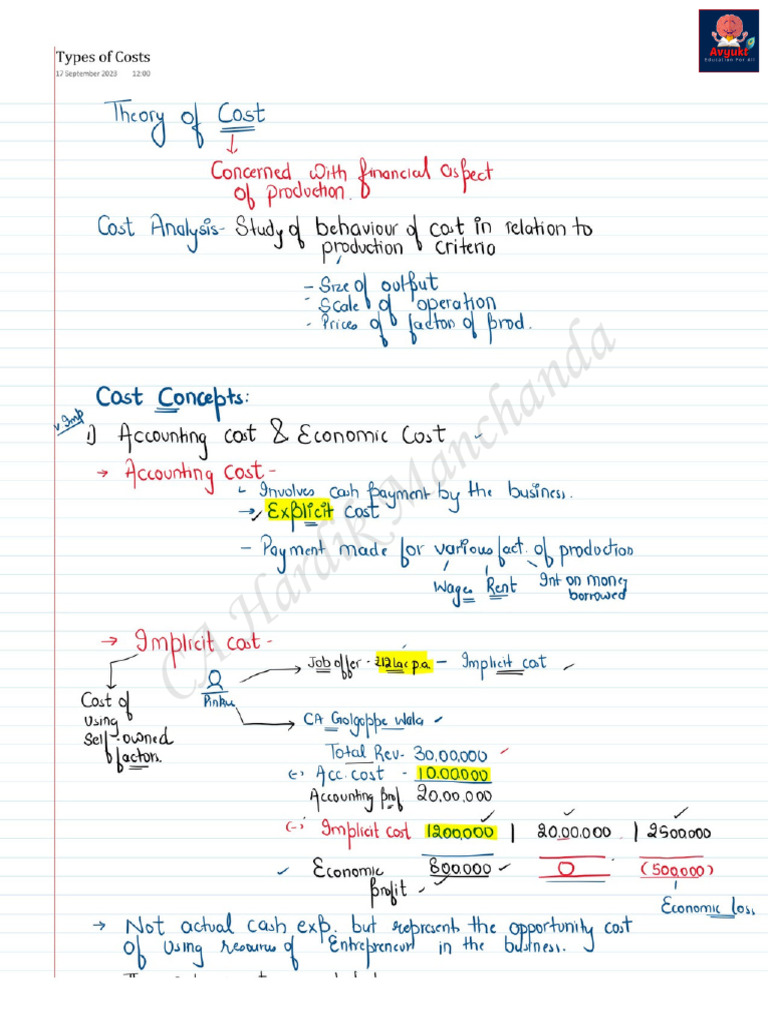 Avyukt
Education For All
Types of Costs
17 September 2023 12:00
Theory of Cost
Concerned with financial aspect
of production.
Cost Analysis- Study of behaviour of cost in relation to
production criteria
- Size of output
- Scale of operation
- Prices of factor of prod.
Cost Concepts:
v.Imp
1) Accounting cost & Economic Cost
→ Accounting cost -
Involves cash payment by the business.
→ Explicit cost
- Payment made for various fact. of production
Wages Rent Int on money
borrowed
→ Implicit cost -
Job offer - 212 lac p.a - Implicit cost
Cost of
using
self-owned
factors.
Pinku
CA Golgappe Wala
Total Rev - 30,00,000
(-) Acc. cost - 10,00,000
Accounting prof 20,00,000
(-) Implicit cost 1200,000 | 20,00,000 | 2500,000
Economic 800,000 0 (500,000)
profit -
Economic loss
→ Not actual cash exp. but represent the opportunity cost
of using resources of Entrepreneur in the business.
CA Hardik Manchanda